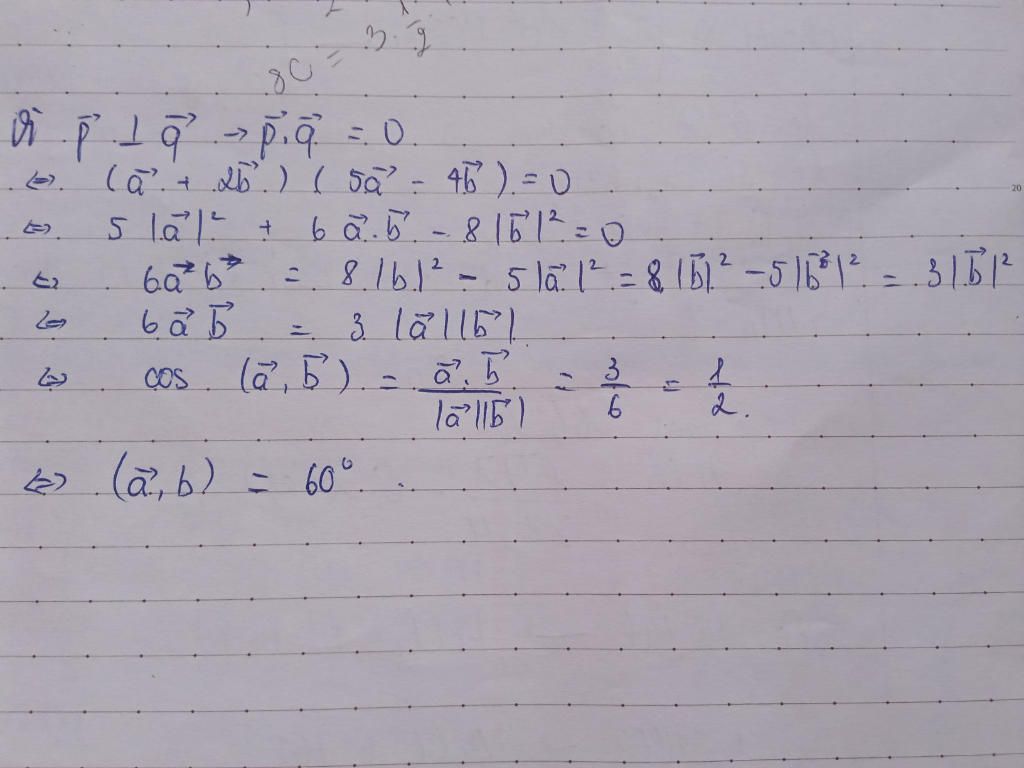 8C = 3.
p⃗ ⊥ q⃗ → p⃗.q⃗ = 0
⇔ (a⃗ + 2b⃗) (5a⃗ - 4b⃗) = 0
⇔ 5|a⃗|² + 6a⃗.b⃗ - 8|b⃗|² = 0
⇔ 6a⃗ b⃗ = 8|b|² - 5|a⃗|² = 8|b⃗|² - 5|b⃗|² = 3|b⃗|²
⇔ 6a⃗ b⃗ = 3 |a⃗||b⃗|
⇔ cos (a⃗, b⃗) = a⃗.b⃗ / |a⃗||b⃗| = 3/6 = 1/2.
⇔ (a⃗, b) = 60°.
20